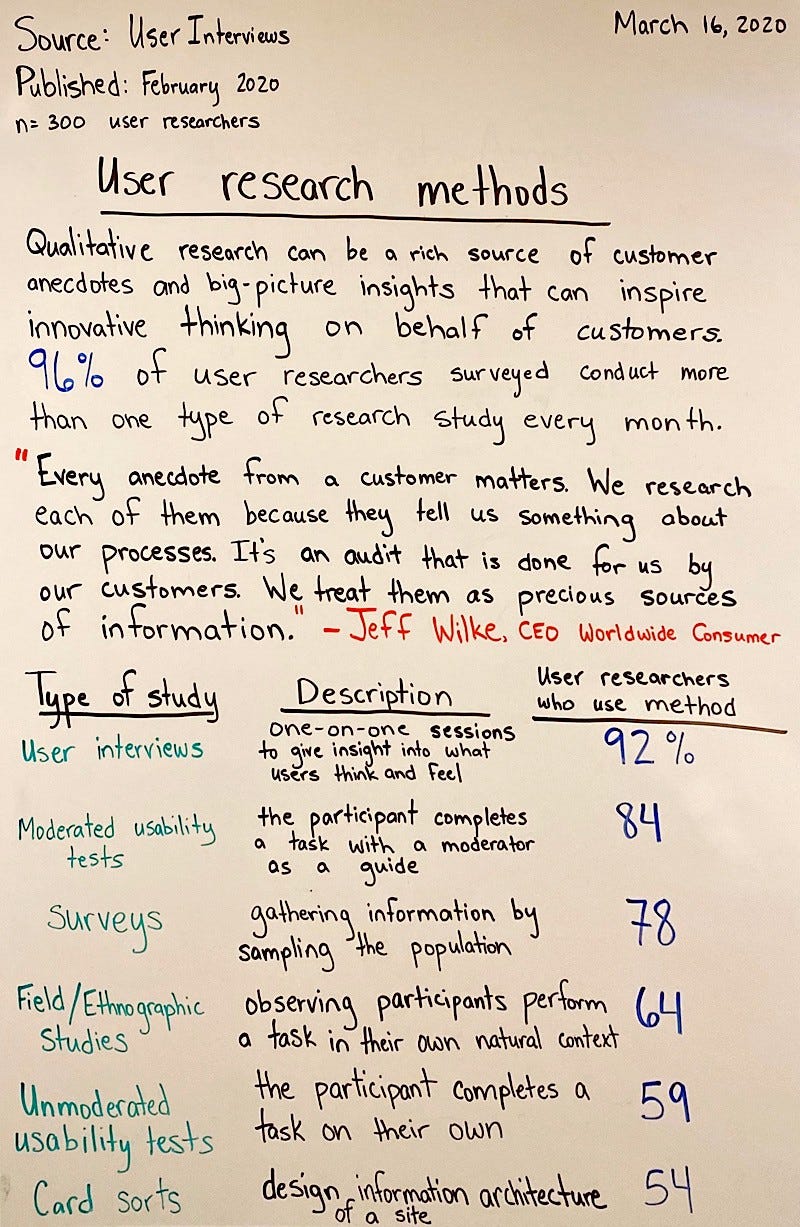 Source: User Interviews
March 16, 2020
Published: February 2020
n= 300 user researchers
User research methods
Qualitative research can be a rich source of customer
anecdotes and big-picture insights that can inspire
innovative thinking on behalf of customers.
96% of user researchers surveyed conduct more
than one type of research study every month.
"Every anecdote from a customer matters. We research
each of them because they tell us something about
our processes. It's an audit that is done for us by
our customers. We treat them as precious sources
of information." - Jeff Wilke, CEO Worldwide Consumer
Type of study
Description
User researchers
who use method
User interviews
one-on-one sessions
to give insight into what
users think and feel
92%
Moderated usability
tests
the participant completes
a task with a moderator
as a guide
84
Surveys
gathering information by
sampling the population
78
Field/Ethnographic
Studies
observing participants perform
a task in their own natural context
64
Unmoderated
usability tests
the participant completes a
task on their own
59
Card sorts
design information architecture
of a site
54